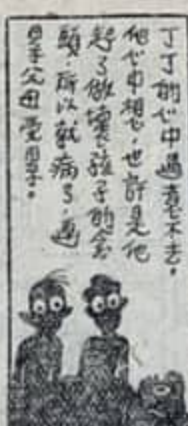 丁丁的心中過意不去。
他心中想，也許是他
起了做壞孩子的念
頭，所以就病了，連
累父母受累。